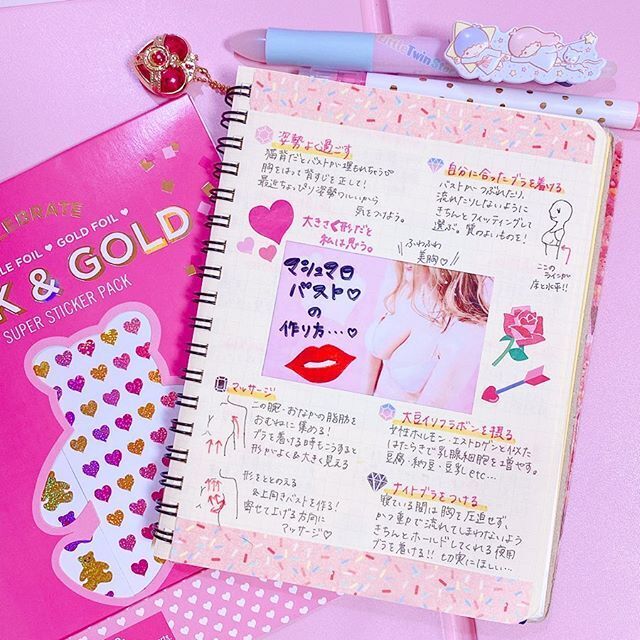 CELEBRATE
GOLD FOIL
K & GOLD
SUPER STICKER PACK
Little Twin St
姿勢よく過ごす
猫背だとバストが埋もれちゃう
胸をはって背すじを正して!
最近ちょっぴり姿勢うしいから
気をつけよう。
大きさく形だと
私は思う。
自分に合ったブラを着ける
バストがつぶれたり、
流れたりしないように
きちんとフィッティングして
選ぶ。質のよいものを!
ここの
ラインが
床と水平!!
ふわふわ
美胸♡
マシュマロ
バスト♡
の
作り方...♡
マッサージ
二の腕・おなかの脂肪を
おむねに集める!
ブラを着ける時もこうすると
形がよく&大きく見える
形をととのえる
&上向きバストを作る!
寄せて上げる方向に
マッサージ♡
大豆イソフラボンを摂る
女性ホルモン・エストロゲンと似た
はたらきで乳腺細胞を増やす。
豆腐・納豆・豆乳 etc...
ナイトブラをつける
寝ている間は胸を圧迫せず、
かつ重力で流れてしまわない
きちんとホールドしてくれる夜用
ブラを着ける!! 切実にほしい...